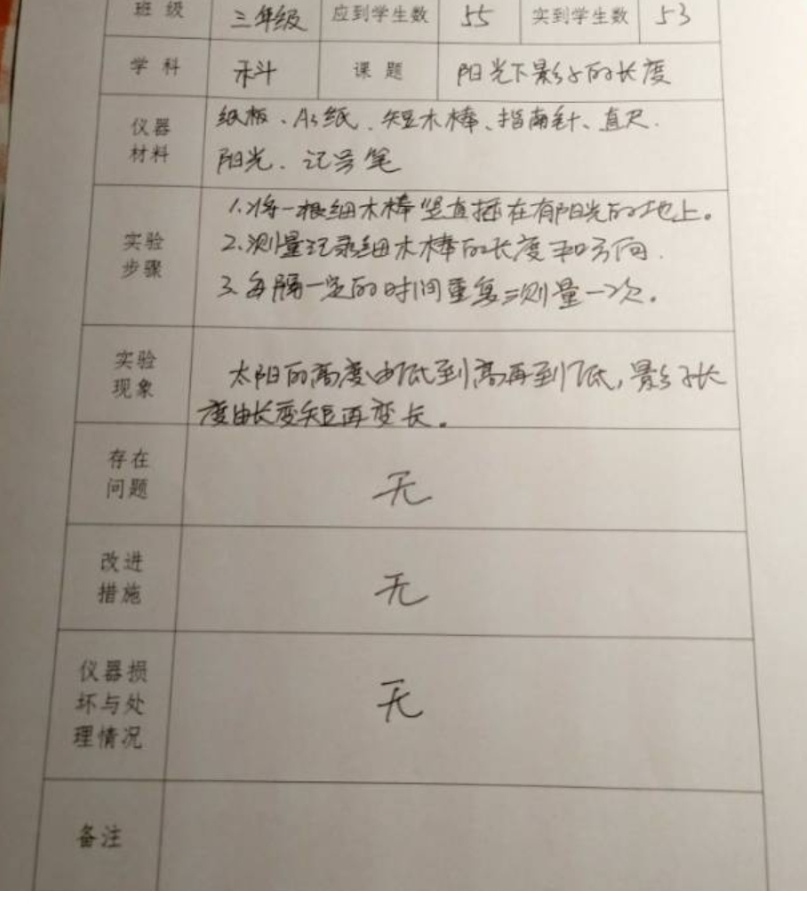 班级 三年级 应到学生数 55 实到学生数 53
学科 科 课题 阳光下影子的长度
仪器 纸板、A4纸、短木棒、指南针、直尺.
材料 阳光、记号笔
1.将一根细木棒竖直插在有阳光的地上。
实验 2.测量记录细木棒的长度和方向.
步骤 3.每隔一定的时间重复测量一次。
实验 太阳的高度由低到高再到低,影子长
现象 度由长变短再变长。
存在
问题 无
改进
措施 无
仪器损
坏与处 无
理情况
备注